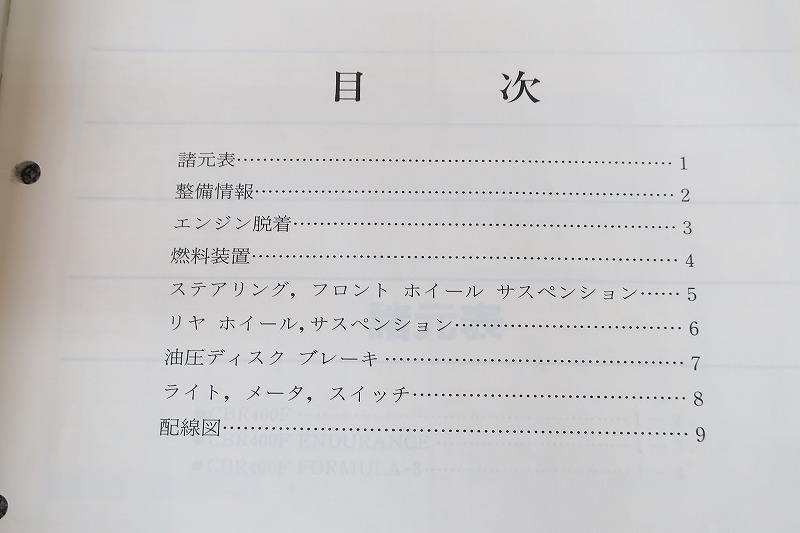 目 次
諸元表……………………………………………………………1
整備情報…………………………………………………………2
エンジン脱着……………………………………………………3
燃料装置…………………………………………………………4
ステアリング，フロント ホイール サスペンション……5
リヤ ホイール，サスペンション………………………………6
油圧ディスク ブレーキ…………………………………………7
ライト，メータ，スイッチ……………………………………8
配線図……………………………………………………………9
諸元表
●CBR400F
●CBR400F ENDURANCE
●CBR400F FORMULA-3